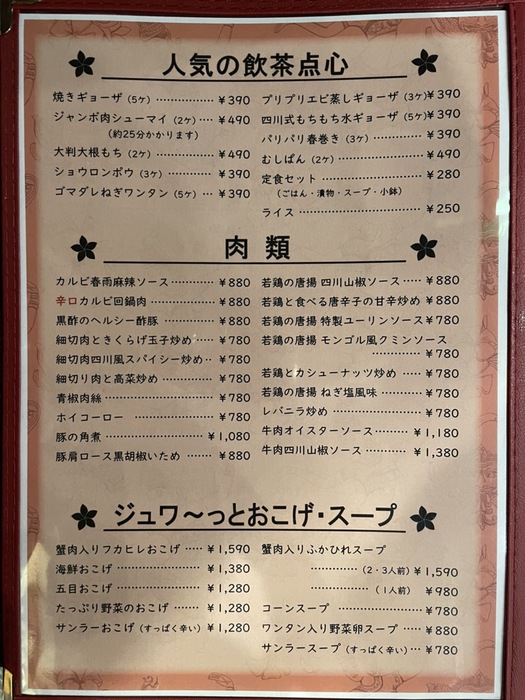 人気の飲茶点心
焼きギョーザ(5ケ)……………¥390
ジャンボ肉シューマイ(2ケ)…¥490
(約25分かかります)
大判大根もち(2ケ)……………¥490
ショウロンポウ(3ケ)…………¥390
ゴマダレねぎワンタン(5ケ)…¥390
プリプリエビ蒸しギョーザ(3ケ)¥390
四川式もちもち水ギョーザ(5ケ)¥390
パリパリ春巻き(3ケ)…………¥390
むしぱん(2ケ)…………………¥490
定食セット………………………¥280
(ごはん・漬物・スープ・小鉢)
ライス……………………………¥250
肉類
カルビ春雨麻辣ソース…………¥880
辛口カルビ回鍋肉………………¥880
黒酢のヘルシー酢豚……………¥880
細切肉ときくらげ玉子炒め……¥780
細切肉四川風スパイシー炒め‥¥780
細切り肉と高菜炒め……………¥780
青椒肉絲…………………………¥780
ホイコーロー……………………¥780
豚の角煮…………………………¥1,080
豚肩ロース黒胡椒いため………¥880
若鶏の唐揚 四川山椒ソース……¥880
若鶏と食べる唐辛子の甘辛炒め¥880
若鶏の唐揚 特製ユーリンソース¥780
若鶏の唐揚 モンゴル風クミンソース
……………¥780
若鶏とカシューナッツ炒め……¥780
若鶏の唐揚 ねぎ塩風味…………¥780
レバニラ炒め……………………¥780
牛肉オイスターソース…………¥1,180
牛肉四川山椒ソース……………¥1,380
ジュワ〜っとおこげ・スープ
蟹肉入りフカヒレおこげ………¥1,590
海鮮おこげ………………………¥1,380
五目おこげ………………………¥1,280
たっぷり野菜のおこげ…………¥1,280
サンラーおこげ(すっぱく辛い)¥1,280
蟹肉入りふかひれスープ
……………(2・3人前)¥1,590
……………(1人前)¥980
コーンスープ……………………¥780
ワンタン入り野菜卵スープ……¥880
サンラースープ(すっぱく辛い)…¥780